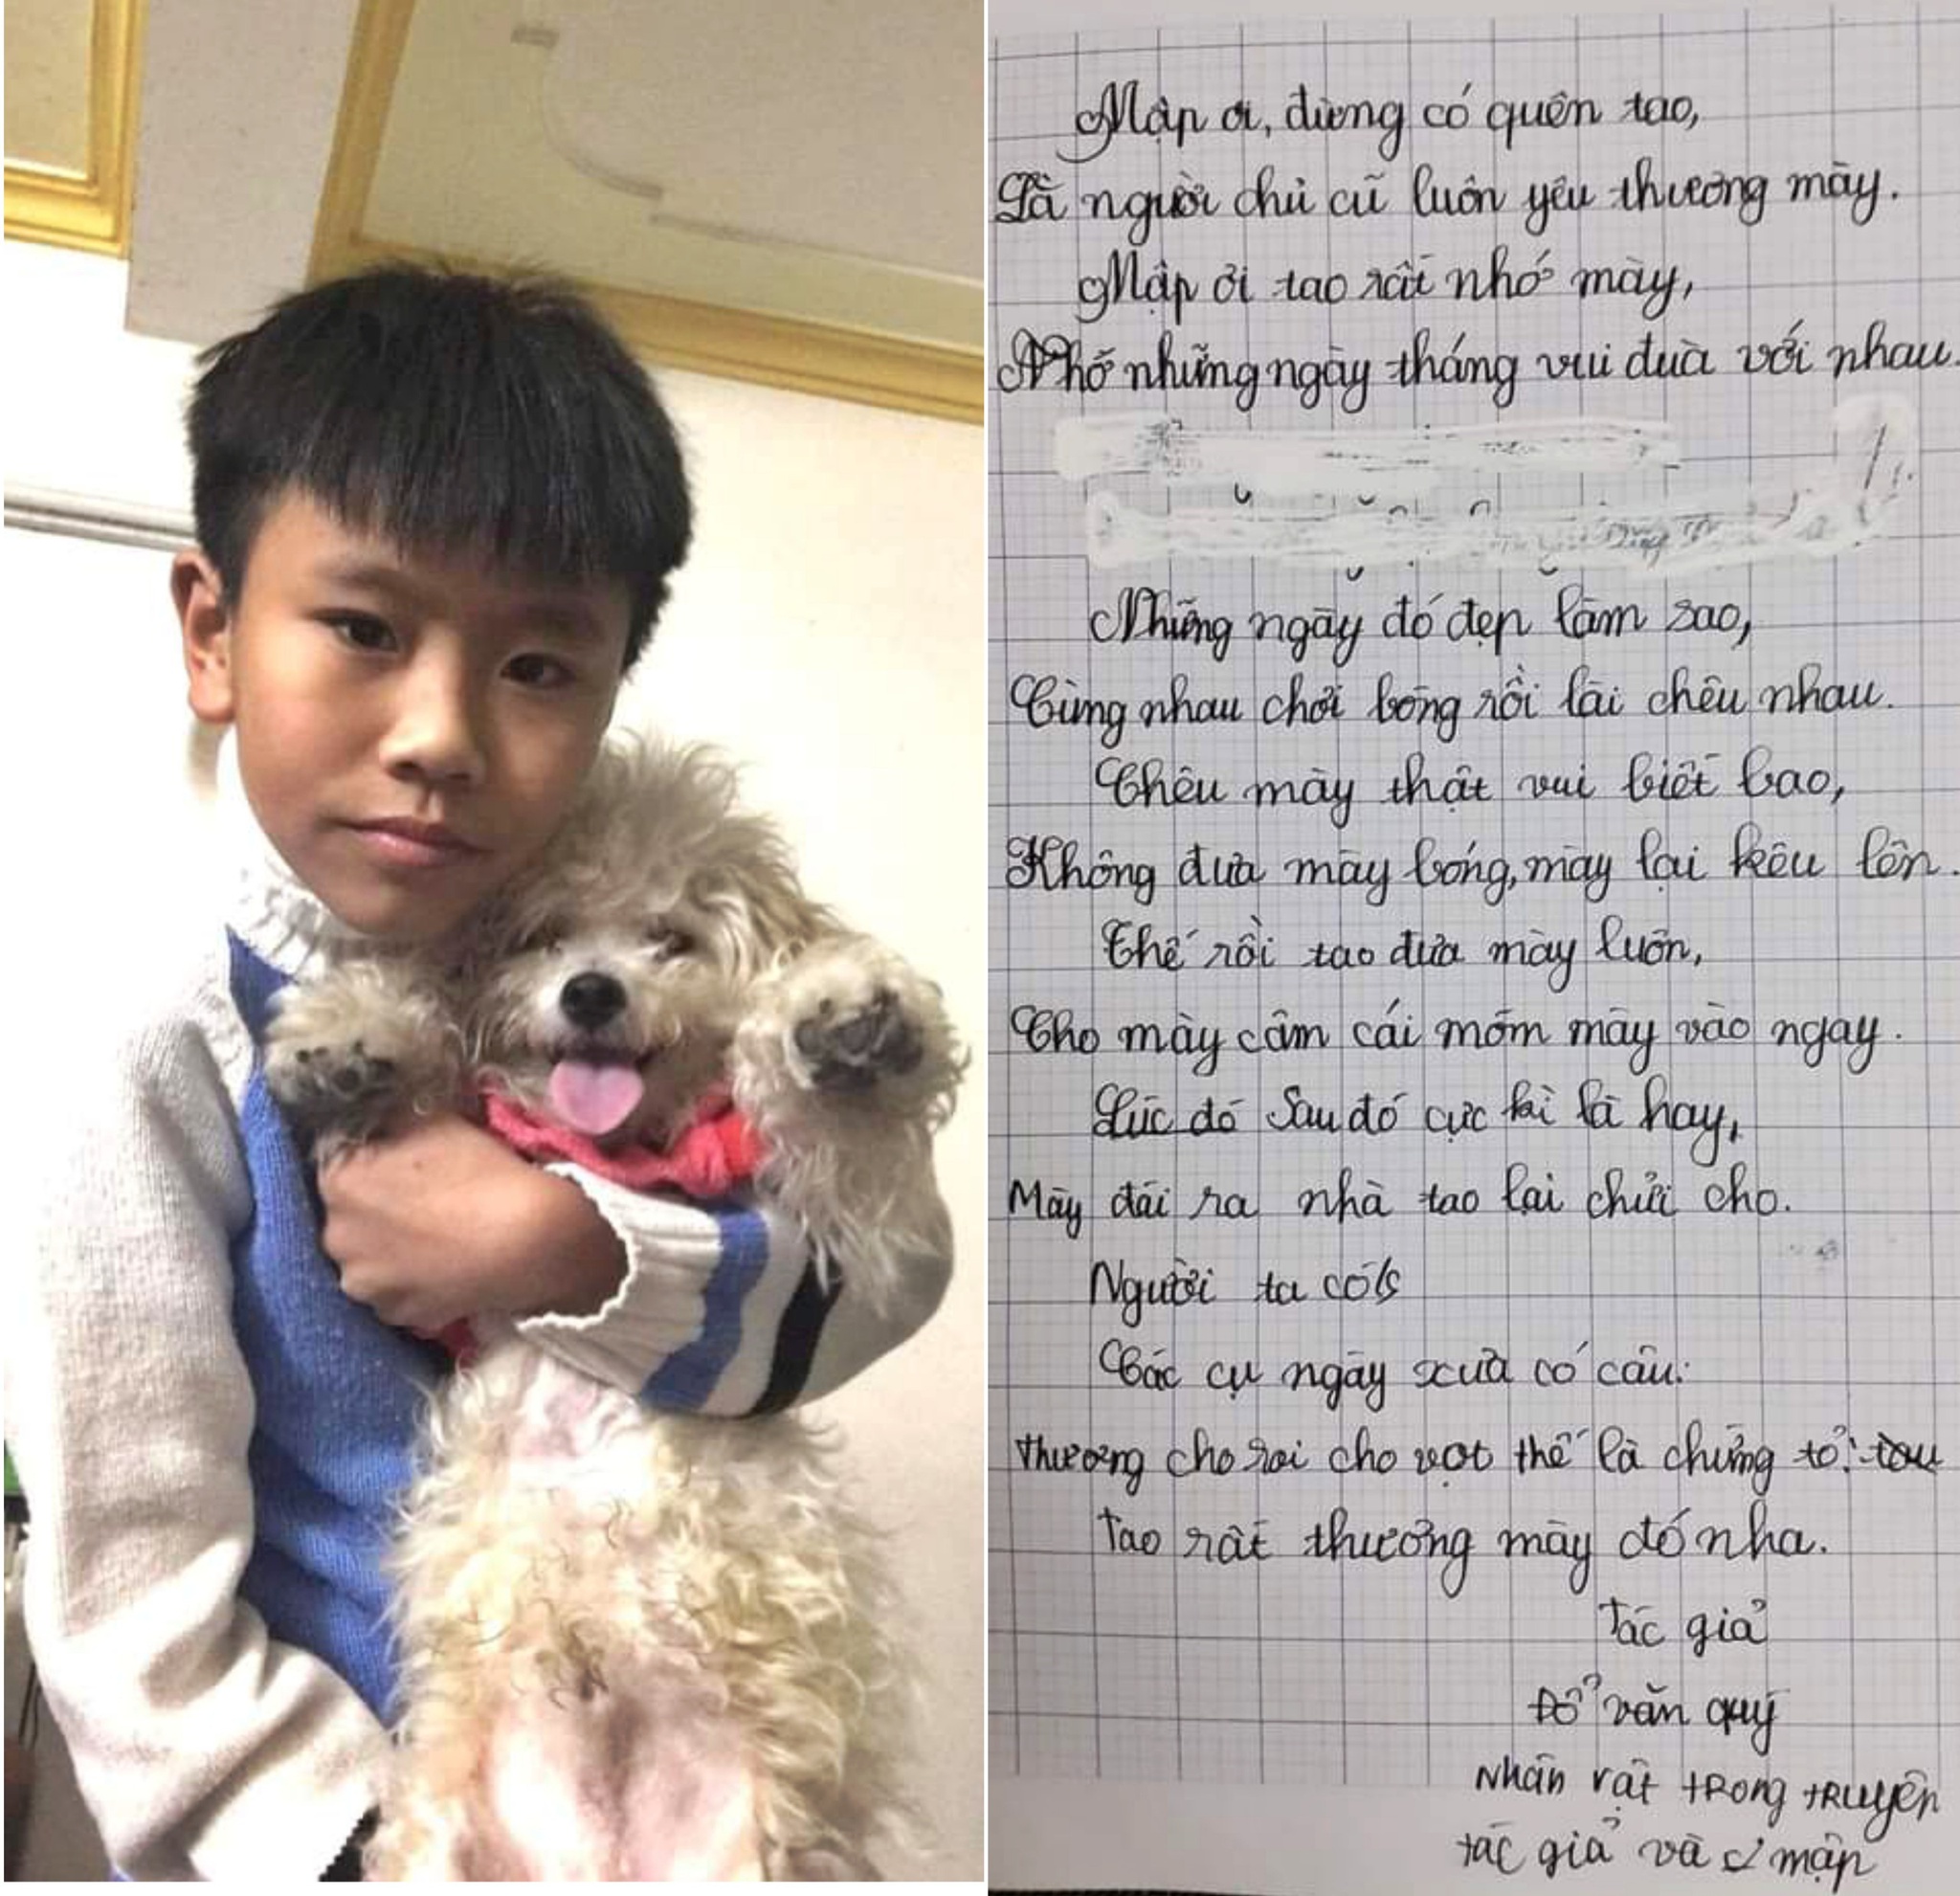 Mập ơi, đừng có quên tao,
Là người chủ cũ luôn yêu thương mày.
Mập ơi tao rất nhớ mày,
Nhớ những ngày tháng vui đùa với nhau.
Những ngày đó đẹp làm sao,
Cùng nhau chơi bóng rồi lại chêu nhau.
Chêu mày thật vui biết bao,
Không đưa mày bóng, mày lại kêu lên.
Thế rồi tao đưa mày luôn,
Cho mày câm cái mồm mày vào ngay.
Lúc đó Sau đó cực kì là hay,
Mày đái ra nhà tao lại chửi cho.
Người ta có
Các cụ ngày xưa có câu:
Thương cho roi cho vọt thế là chứng tỏ: tau
Tao rất thương mày đó nha.
Tác giả
Đổ văn quý
Nhân vật trong truyện
tác giả và mập